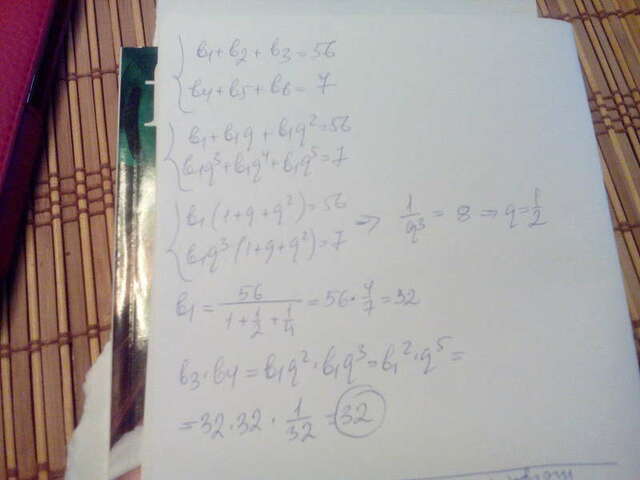 b1+b2+b3=56
b4+b5+b6=7
b1+b1q+b1q²=56
b1q³+b1q⁴+b1q⁵=7
b1(1+q+q²)=56
b1q³(1+q+q²)=7 => 1/q³ = 8 => q=1/2
b1 = 56/(1+1/2+1/4) = 56·4/7 = 32
b3·b4 = b1q²·b1q³ = b1²·q⁵ =
= 32·32·1/32 = 32